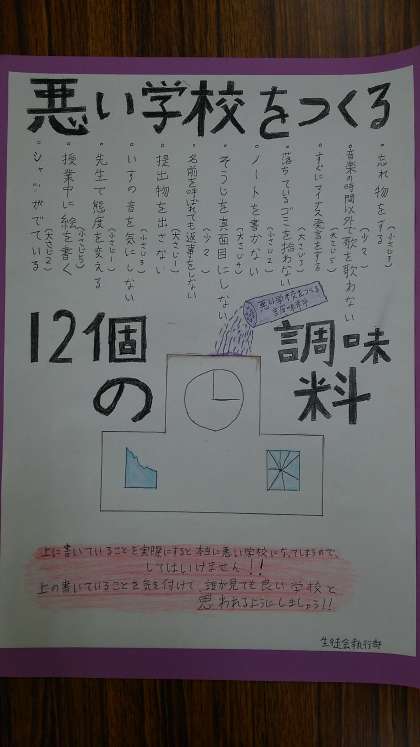 悪い学校をつくる
12個の調味料
・忘れ物をする
・音楽の時間以外で歌を歌わない(少々)
・すぐにマイナス発言をする(大さじ5)
・落ちているゴミを拾わない
・ノートを書かない(小さじ2)
・そうじを真面目にしない(大さじ4)
・名前を呼ばれても返事をしない(少々)
・提出物を出さない(大さじ1)
・いすの音を気にしない
・先生で態度を変える(小さじ1)
・授業中に絵を書く(小さじ5)
・シャツがでている(大さじ2)
悪い学校をつくる
上に書いていることを実際にすると本当に悪い学校になってしまうので、
してはいけません!!
上の書いていることを気を付けて、誰が見ても良い学校と
思われるようにしましょう!!
生徒会執行部